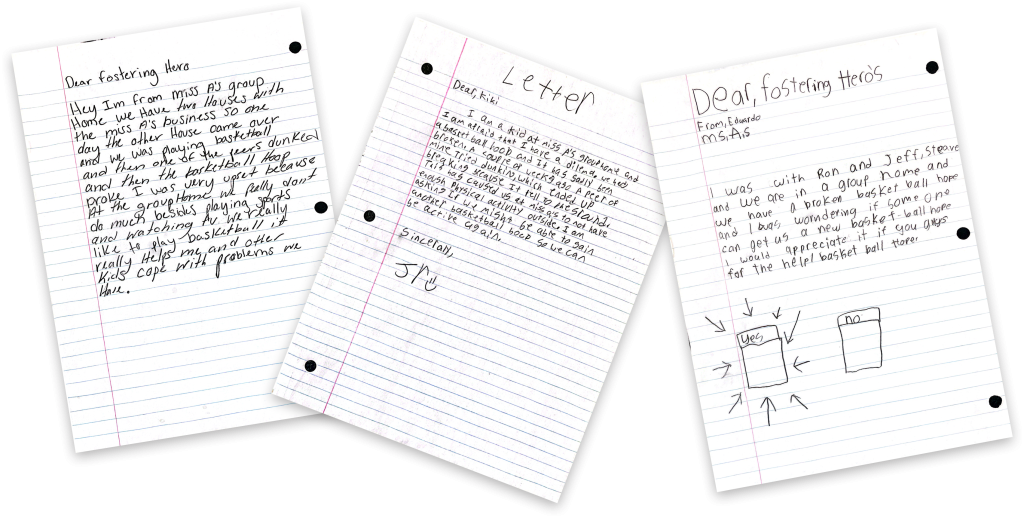 Dear fostering Hero
Hey Im from miss A's group
Home we Have two Houses with
the miss A's business so one
day the other House came over
and we was playing basketball
and then one of the peers dunked
and then the basketball Hoop
broke I was very upset because
At the grouphome we rally don't
do much besids playing sports
and watching tv we really
like to play basketball it
really Helps me and other
Kids cope with problems we
Have.
Letter
Dear, Kiki
I am a kid at miss A's grouphome and
I am afraid that I have a dilema, we had
a basketball hoop and it has sadly been
broken. A couple of weeks ago A Peer of
mine tried dunking, which ended up
breaking because it fell to the ground,
it has caused us at miss as to not have
enough physical activity outside. I am
asking if we might be able to gain
another basketball hoop so we can
be active again.
Sincerally,
J
Dear, fostering Hero's
From, Eduardo
Ms, A,s
I was with Ron and Jeff, Steave
and we are in a group home and
we have a broken basket ball hope
and I was wondering if some one
can get us a new basket-ball hope
I would appreciate it if you guys
for the help! basket ball hope.
yes
no